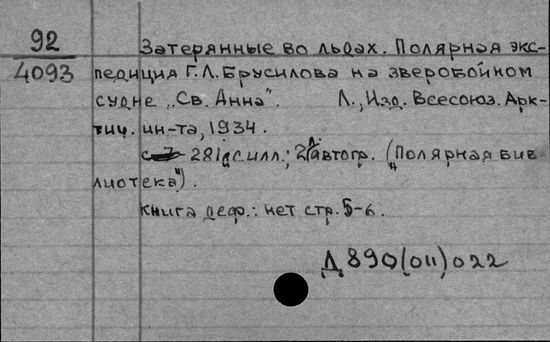 92
4093
Затерянные во льдах. Полярная экс-
педиция Г.Л.Брусилова на зверобойном
судне „Св. Анна". Л., Изд. Всесоюз. Арк-
тич. ин-та, 1934.
281 с илл.; 2 л автогр. („Полярная биб
лиотека").
Книга деф.: нет стр. 5-6.
Д 890(011)022